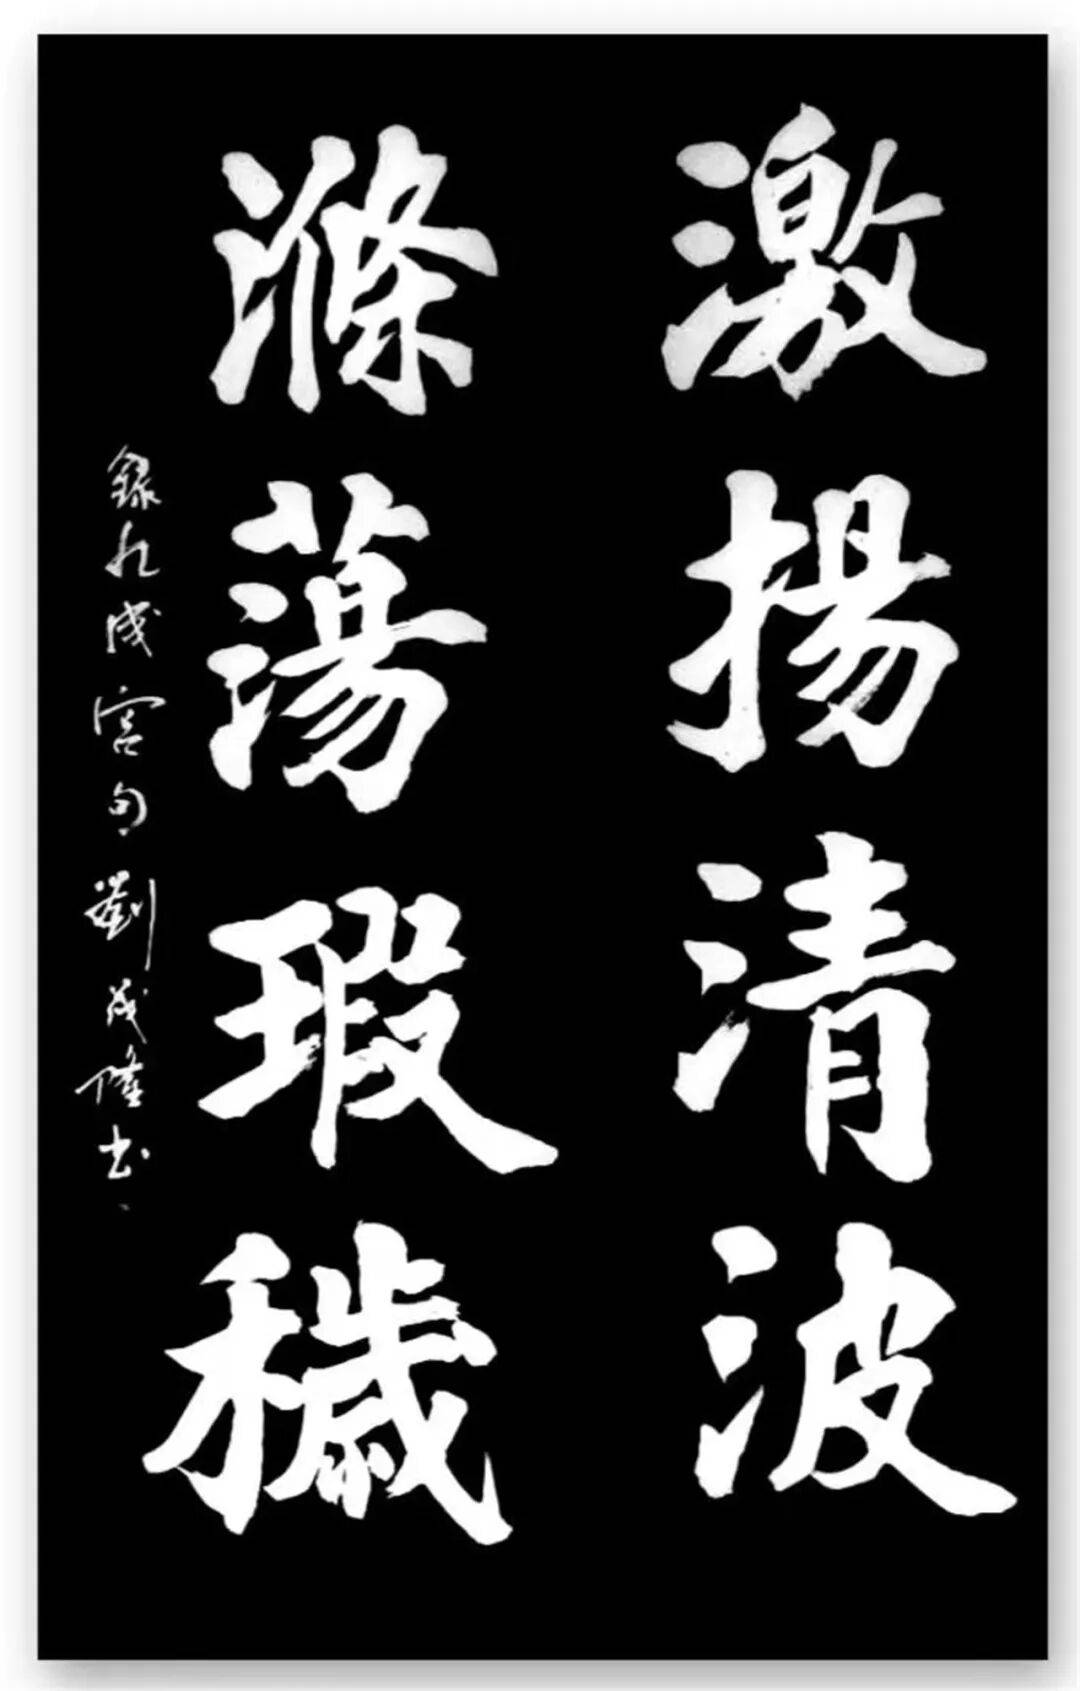 激揚清波
滌蕩瑕穢
錄九成宮句劉成隆书